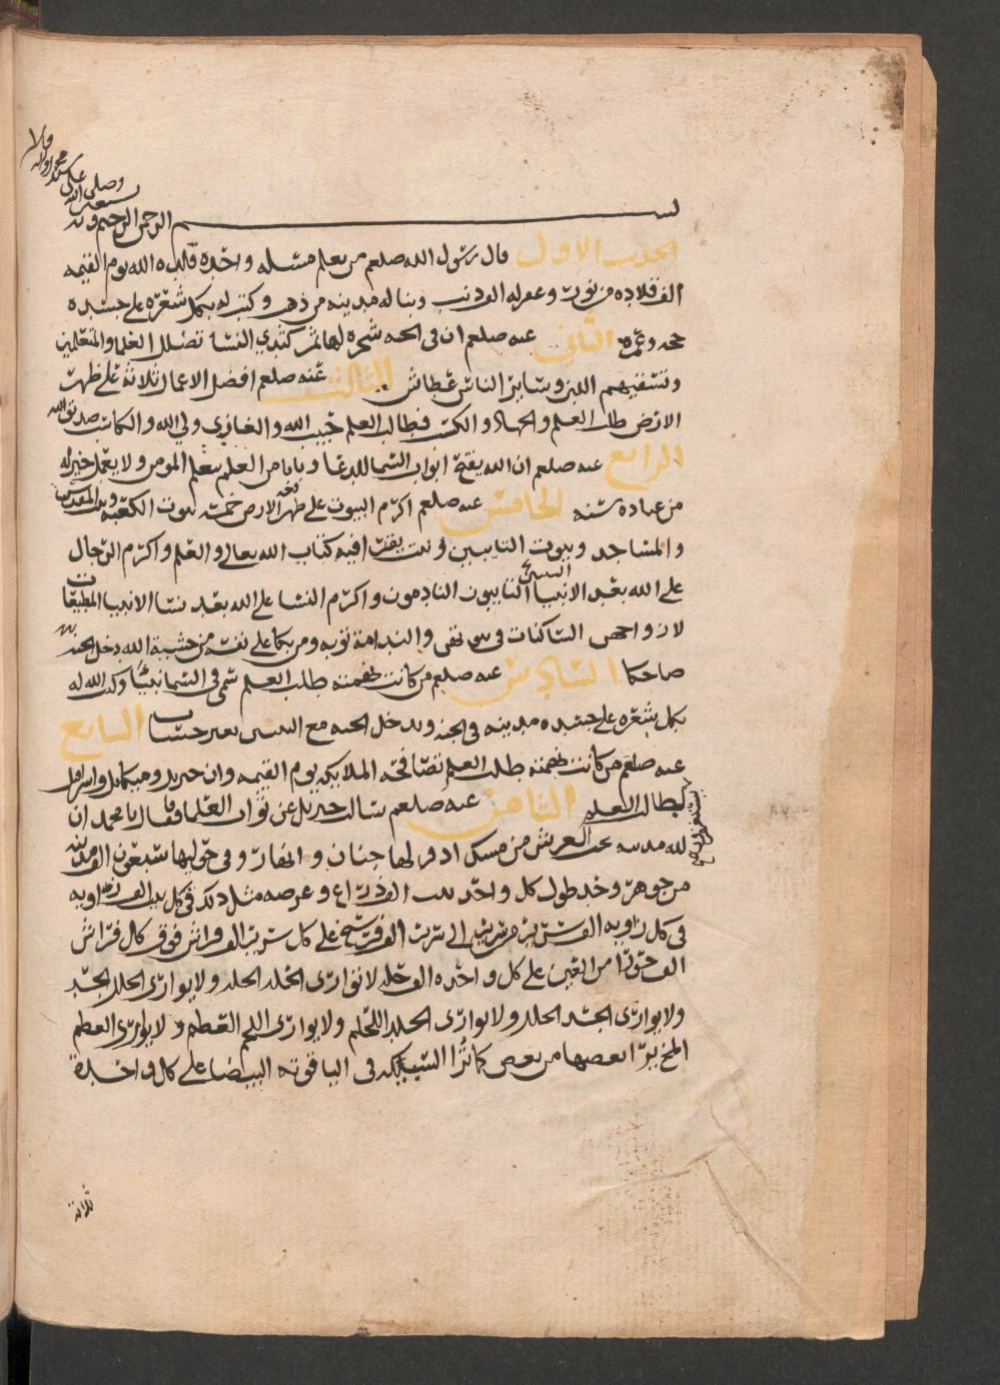 بسم الله الرحمن الرحيم وبه
نستعين
وصلى الله على
سيدنا محمد واله
الحديث الاول قال رسول الله صلعم من تعلم مسئله واحده قلده الله يوم القيمه
الف قلاده من نور وغفر له الف ذنب وبنا له مدينه من ذهب وكتب له بكل شعره على جسده
حجه وعمره الثاني عنه صلعم ان في الجنه شجره لها ثمر كثدي النسا تفضل العلما والمتعلمين
وتسقيهم اللبن وساير الناس عطاش الثالث عنه صلعم افضل الاعمال ثلاثه على ظهر
الارض طلب العلم والجهاد والكسب فطالب العلم حبيب الله والغازي ولي الله والكاسب صديق الله
الرابع عنه صلعم ان الله يفتح ابواب السما للدعا وبابا من العلم يتعلم المومن ولا يعمل خير له
من عباده سنه الخامس عنه صلعم اكرم البيوت على ظهر الارض خمسه بيوت الكعبه وبيت المقدس
والمساجد وبيوت التايبين وبيت يقرا فيه كتاب الله تعالى والعلم واكرم الرجال
على الله بعد الانبيا التايبون النادمون واكرم النسا على الله بعد نسا الانبيا المطيعات
لازواجهن الساكنات في بيوتهن والندامة توبه ومن بكا على نفسه من خشية الله دخل الجنه
ضاحكا السادس عنه صلعم من كانت همته طلب العلم سمي في السما نبيا وكتب الله له
بكل شعره على جسده مدينه في الجنه ويدخل الجنه مع النبيين بغير حساب السابع
عنه صلعم من كانت همته طلب العلم تصافحه الملايكه يوم القيمه وان جبريل وميكايل واسرافيل
لطالب العلم الثامن عنه صلعم سالت جبريل عن ثواب العلما فقال يا محمد ان
لله مدينه تحت العرش من مسك اذفر لها جنان وانهار وفي حواليها سبعون الف مدينه
من جوهر واحد طول كل واحد الف ذراع وعرضه مثل ذلك في كل الف زاويه
في كل زاويه الف سرير من سرير الى سرير الف فرسخ على كل سرير الف فراش فوق كل فراش
الف حورا من العين على كل واحده الف حله لا توارى الحله الحله ولا يوارى الحلل الجسد
ولا يوارى الجسد الجلد ولا يوارى الجلد اللحم ولا يوارى اللحم العظم ولا يوارى العظم
المخ يرا بعضها من بعض كما ترا السبيكه في الياقوته البيضا على كل واحدة
ثلاثة